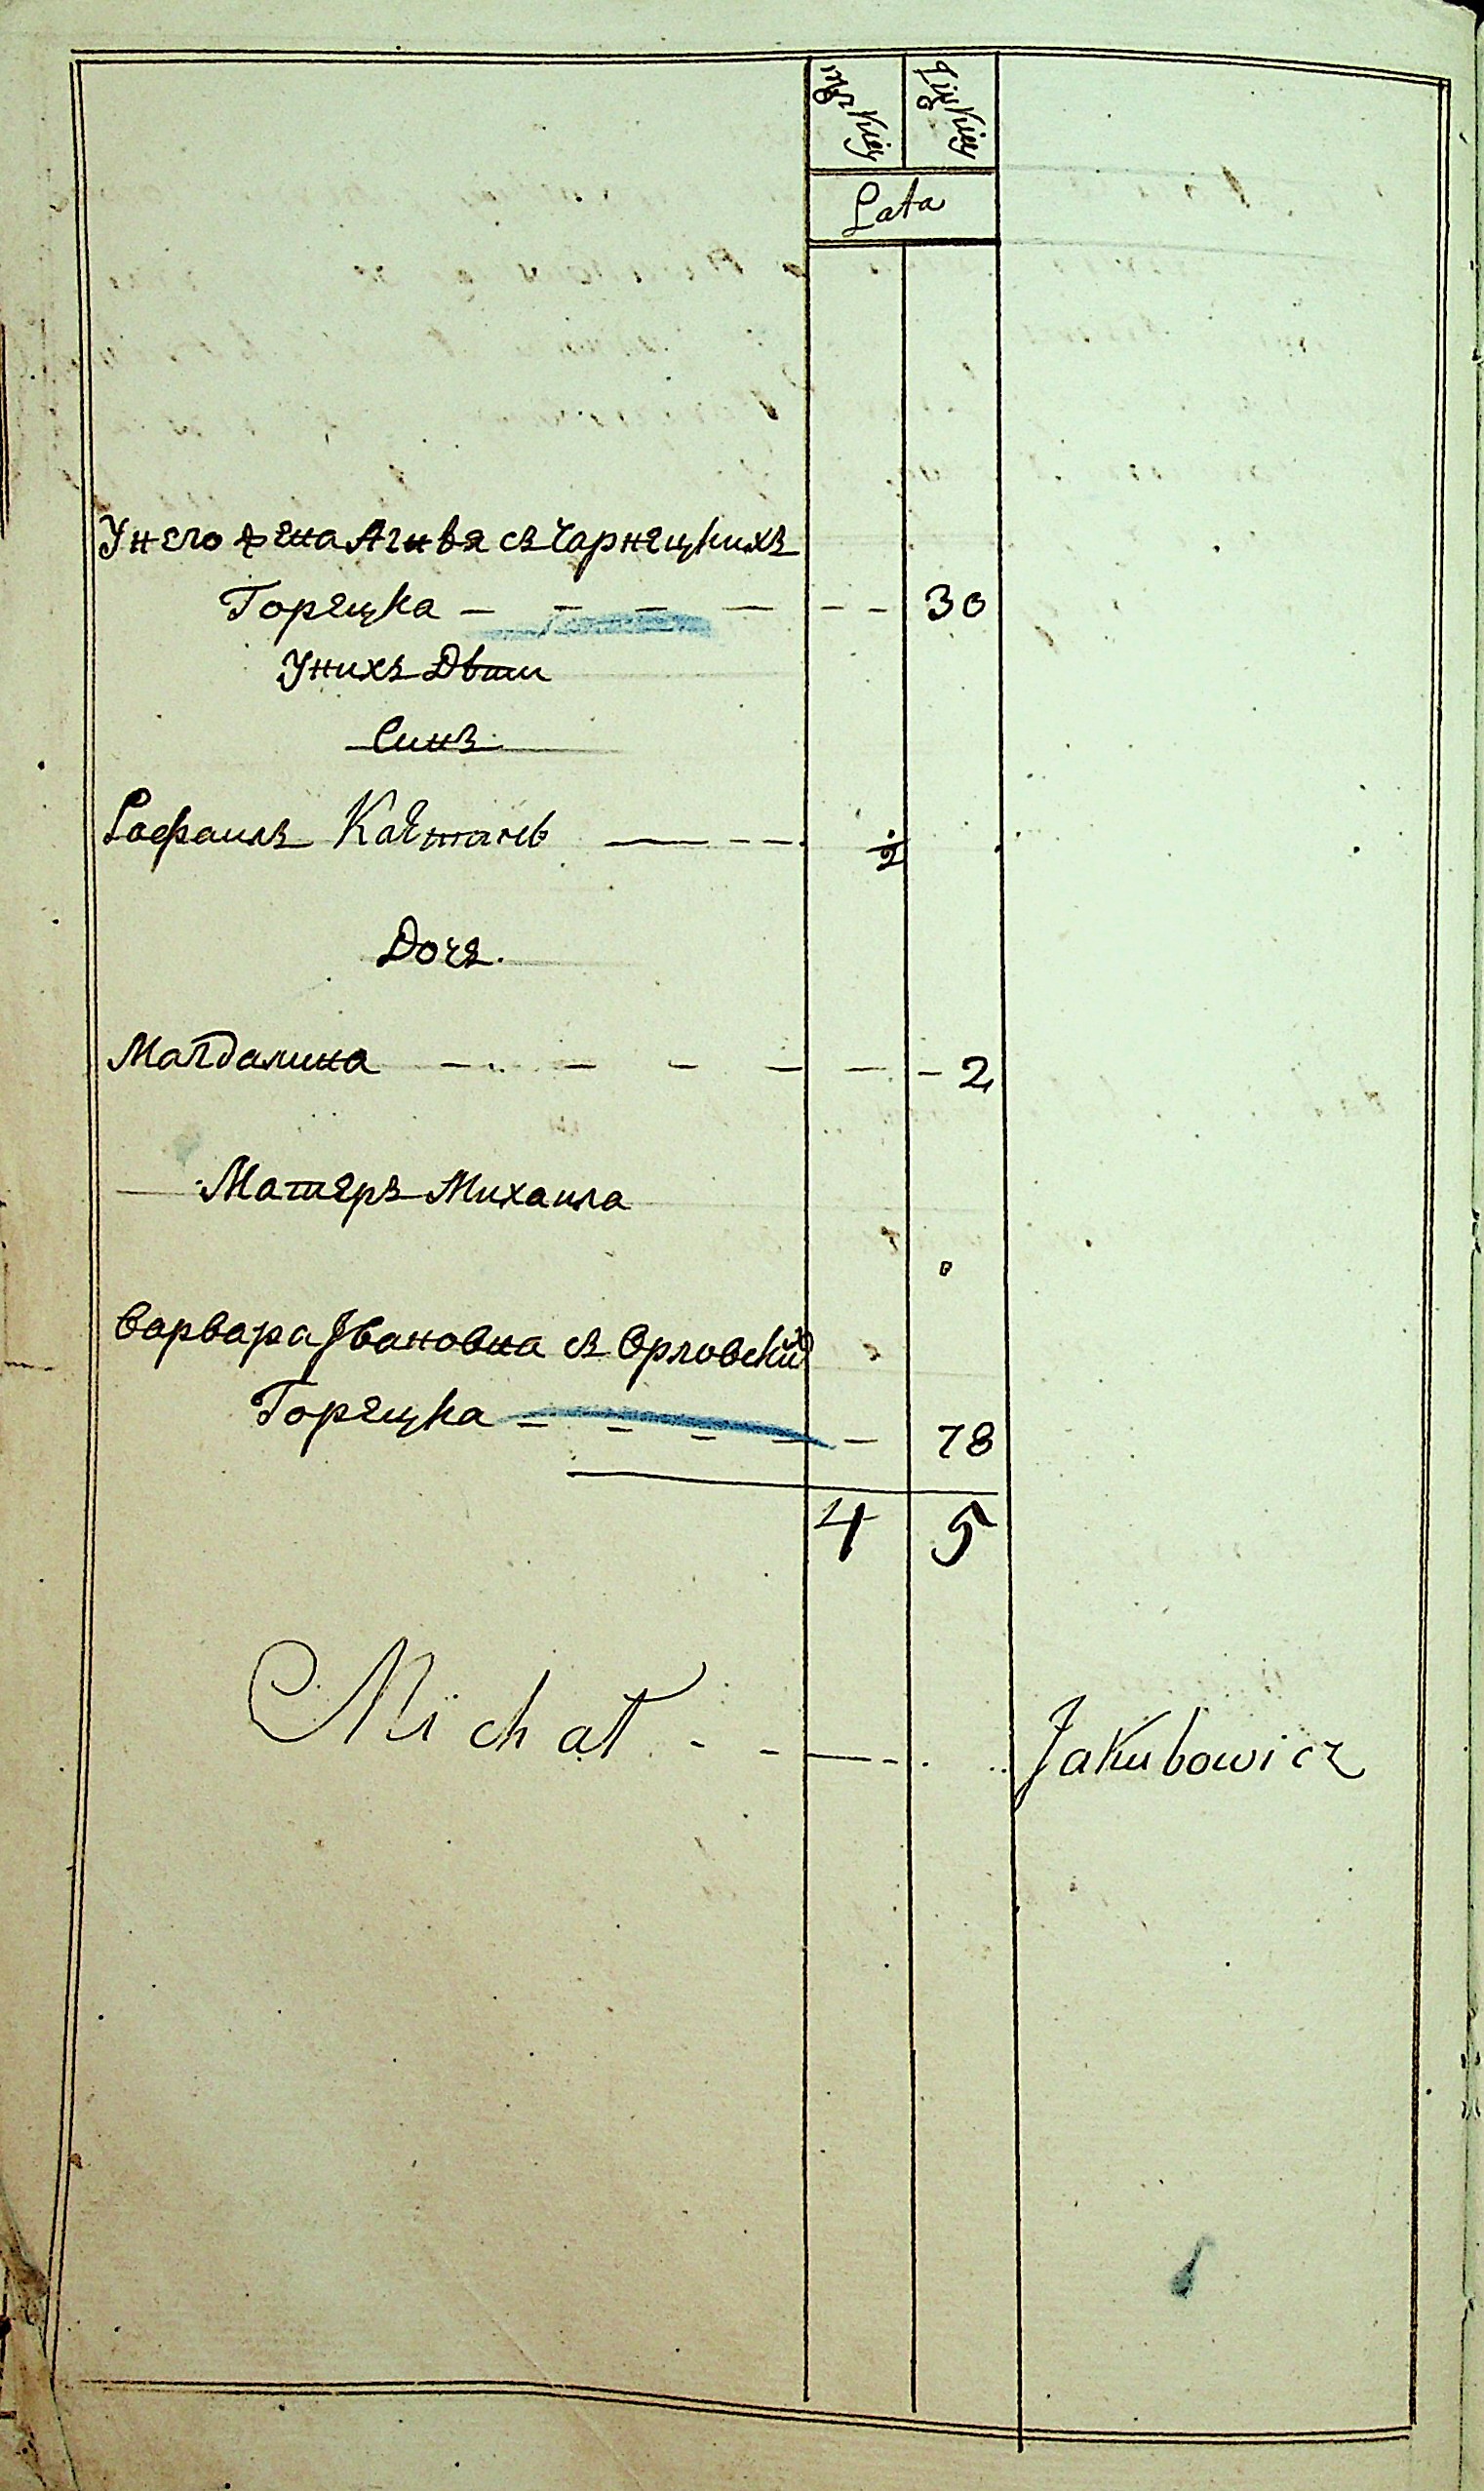 Męzkiey Żeńskiey
Lata
Унего жена Агнѣя съ Чарнецкихъ
Горецка — — — — — — 30
Унихъ Дѣти
Синъ
Рафаилъ Каетанъ — — — ½
Дочъ.
Магдалина — — — — — — 2
Матеръ Михаила
Варвара Ивановна съ Орловских
Горецка — — — — — 78
4 5
Michał - - — - . .. Jakubowicz